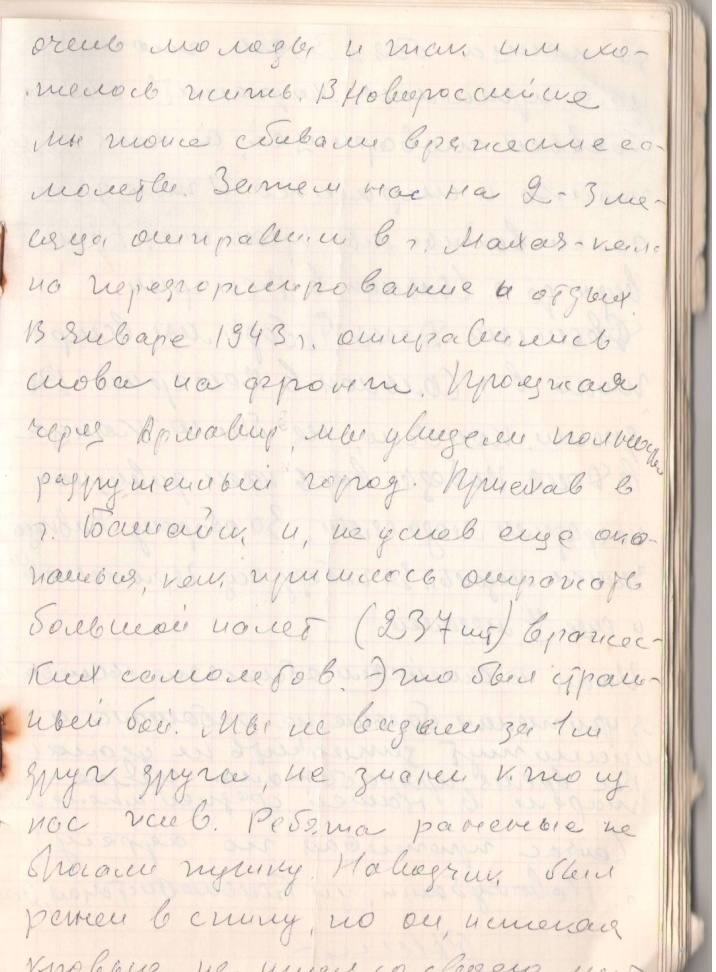 очень молоды и так им хо-
телось жить. В Новороссийске
мы тоже сбивали вражеские са-
молеты. Затем нас на 2-3 ме-
сяца отправили в г. Махач-кала
на переформирование и отдых.
В январе 1943 г. отправились
снова на фронт. Проезжая
через Армавир, мы увидели полностью
разрушенный город. Приехав в
г. Батайск и, не успев еще око-
паться, нам пришлось отражать
большой налет (237 шт) вражес-
ких самолетов. Это был страш-
ный бой. Мы не видели за 1 м
друг друга, не знали кто из
нас жив. Ребята раненые не
бросали пушку. Наводчик был
ранен в спину, но он, истекая
кровью, не